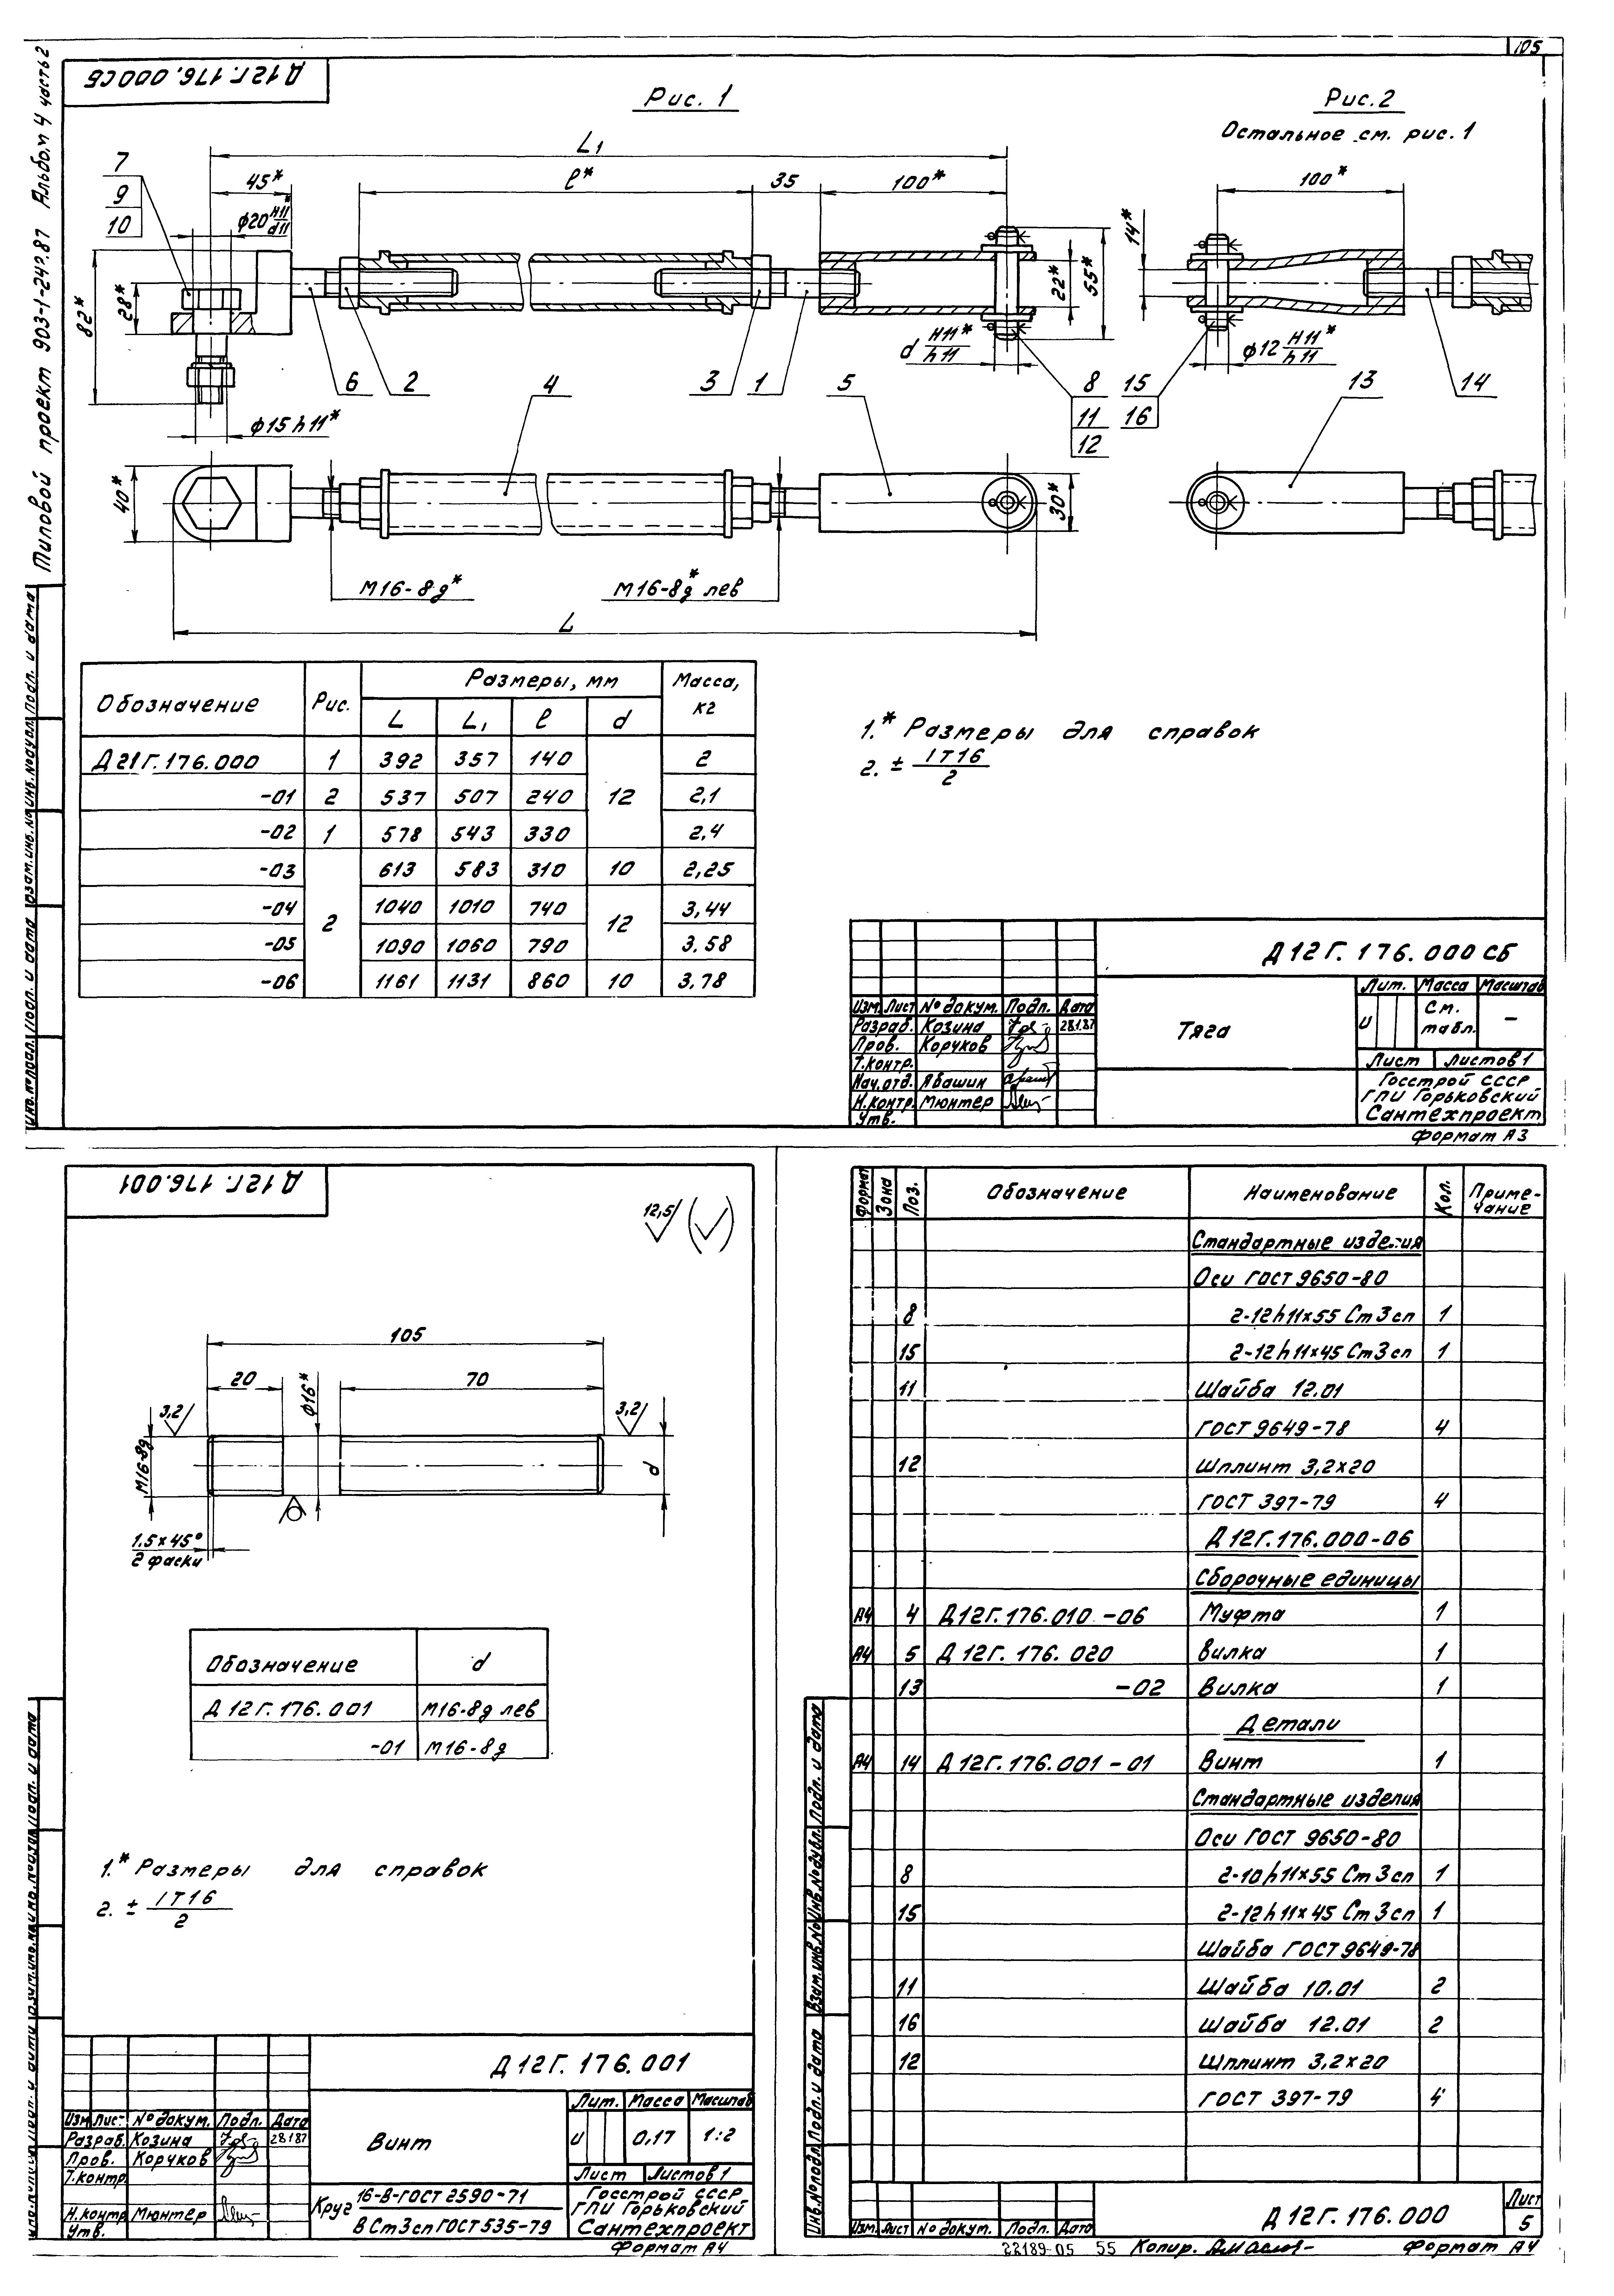 105
Типовой проект 903-1-249.87 Альбом 4 часть 2
Д12Г.176.000СБ
Рис. 1
Рис. 2
Остальное см. рис. 1
L1
45*
l*
35
100*
100*
7
9
10
ϕ20 H11/d11*
82*
28*
14*
22*
55*
d H11/h11*
ϕ12 H11/h11*
6
2
4
3
1
5
8
11
12
15
16
13
14
ϕ15 h11*
40*
30*
М16-8g*
М16-8g* лев
L
Обозначение Рис. Размеры, мм Масса, кг
L L1 l d
Д21Г.176.000 1 392 357 140 12 2
-01 2 537 507 240 2,1
-02 1 578 543 330 2,4
-03 2 613 583 310 10 2,25
-04 1040 1010 740 12 3,44
-05 1090 1060 790 3.58
-06 1161 1131 860 10 3,78
1.* Размеры для справок
2. ± IT16/2
Д12Г.176.000СБ
Изм. Лист № докум. Подп. Дата
Разраб. Козина 28.1.87
Пров. Корчков
Т.контр.
Нач.отд. Явашин
Н.контр. Мюнтер
Утв.
Тяга
Лит. Масса Масштаб
И См. табл. –
Лист Листов 1
Госстрой СССР
ГПИ Горьковский
Сантехпроект
Формат А3
Д12Г.176.001
12,5
105
20
70
ϕ16*
3,2
3,2
М16-8g
d
1.5×45°
2 фаски
Обозначение d
Д12Г.176.001 М16-8g лев
-01 М16-8g
1.* Размеры для справок
2. ± IT16/2
Д12Г.176.001
Изм. Лист № докум. Подп. Дата
Разраб. Козина 28.1.87
Пров. Корчков
Т.контр.
Н.контр. Мюнтер
Утв.
Винт
Лит. Масса Масштаб
И 0,17 1:2
Лист Листов 1
Круг 16-В-ГОСТ 2590-71
ВСт3сп ГОСТ 535-79
Госстрой СССР
ГПИ Горьковский
Сантехпроект
Формат А4
Формат Зона Поз. Обозначение Наименование Кол. Приме-чание
Стандартные изделия
Оси ГОСТ 9650-80
8 2-12h11×55 Ст3сп 1
15 2-12h11×45 Ст3сп 1
11 Шайба 12.01
ГОСТ 9649-78 4
12 Шплинт 3,2×20
ГОСТ 397-79 4
Д12Г.176.000-06
Сборочные единицы
А4 4 Д12Г.176.010-06 Муфта 1
А4 5 Д12Г.176.020 Вилка 1
13 -02 Вилка 1
Детали
А4 14 Д12Г.176.001-01 Винт 1
Стандартные изделия
Оси ГОСТ 9650-80
8 2-10h11×55 Ст3сп 1
15 2-12h11×45 Ст3сп 1
Шайба ГОСТ 9649-78
11 Шайба 10.01 2
16 Шайба 12.01 2
12 Шплинт 3,2×20
ГОСТ 397-79 4
Инв.№подл. Подп. и дата Взам.инв.№ Инв.№дубл. Подп. и дата
Изм. Лист № докум. Подп. Дата
Д12Г.176.000
Лист
5
22189-05 55 Копир.
Формат А4